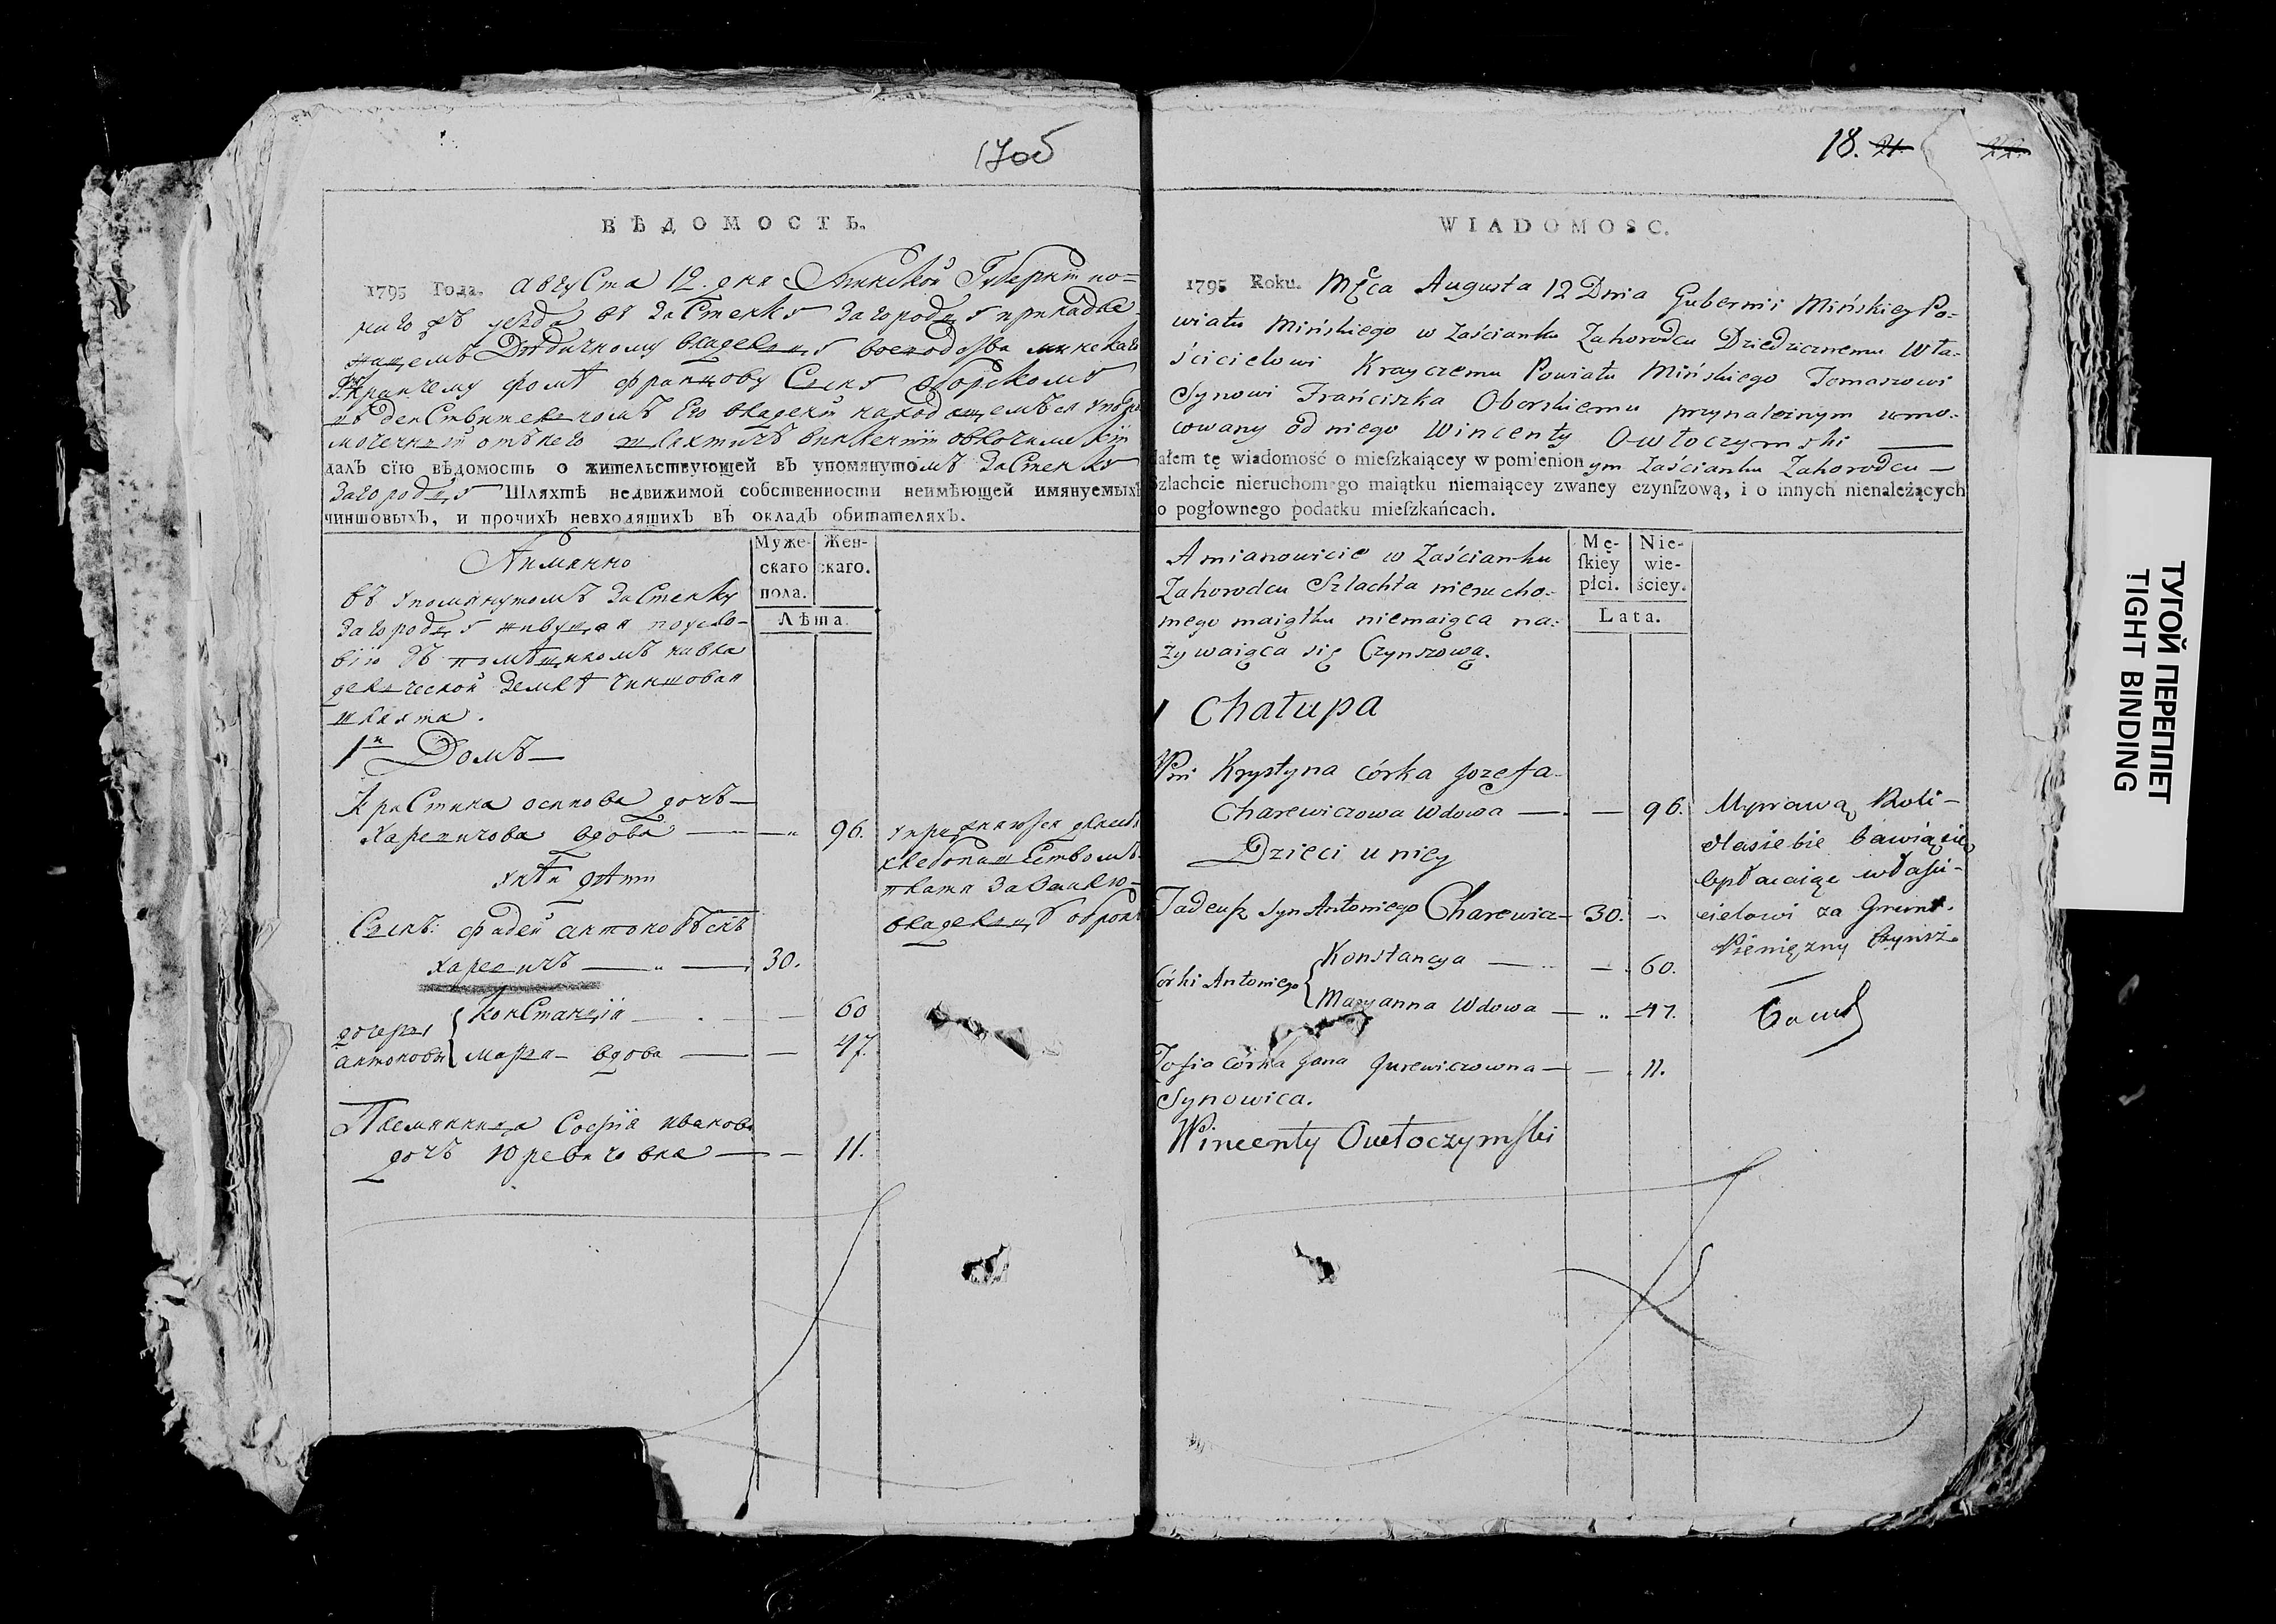 17об
ВѢДОМОСТЬ.
1795 Года. Августа 12. дня Минской Губернiи по-
вѣта въ застенку Загородцу принадле-
жащемъ Дѣдичному владельцу воеводства минскаго
Крайчему фомѣ францову Сыну Оборскому
въ действителномъ Его владенiи находящемъся упол
моченный отъ него шляхтичъ викентiй овлочимскiй
далъ сїю вѣдомость о жительствующей въ упомянутомъ Застенку
Загородцу Шляхтѣ недвижимой собственности неимѣющей имянуемыхъ
чиншовыхъ, и прочихъ невходящихъ въ окладъ обитателяхъ.
Муже-
скаго
пола.
Жен-
скаго.
Лѣта.
Аимянно
въ упомянутомъ Застенку
Загородцу живущая по усло-
вiю съ помѣщикомъ на вла
делческой Землѣ чиншовая
шляхта.
1й Домъ —
Кристина осипова дочь —
Харевичова вдова — — 96.
упражняются
хлебопашествомъ
владельцу оброкъ
унѣи дѣти
Сынъ: фадей антоновъ Сынъ
харевичъ — 30.
дочери
антоновы
Констанцiя — — 60
марья — вдова — — 47.
Племянница Софiя иванова
дочь Юревичовна — — 11.
18. 21.
22
WIADOMOSC.
1795 Roku. Mca Augusta 12 Dnia Gubernii Mińskiey Po-
wiatu Mińskiego w Zaścianku Zahorodcu Dziedzicznemu Wła-
ścicielowi Krayczemu Powiatu Mińskiego Tomaszowi
Synowi Franciszka Oborskiemu przynależnym umo-
cowany od niego Wincenty Owłoczymski —
dałem tę wiadomość o mieſzkaiącey w pomienionym Zaścianku Zahorodcu —
Szlachcie nieruchomego maiątku niemaiącey zwaney czynſzową, i o innych nienależących
do pogłownego podatku mieſzkańcach.
Mę-
ſkiey
płci.
Nie-
wie-
ściey.
Lata.
Amianowicie w Zaścianku
Zahorodcu Szlachta nierucho-
mego maiątku niemaiąca na-
zywaiąca się Czynszową.
1 Chałupa
Pni Krystyna córka Jozefa
Charewiczowa Wdowa — — 96.
Uprawą Roli —
dlasiebie bawiąsię
opłacaiąc właści-
cielowi za Grunt.
Pieniężny Czynsz.
Dzieci u niey
Tadeuſz syn Antoniego Charewicz — 30. —
Córki Antoniego
Konstancya — — 60.
Maryanna Wdowa — — 47.
Zofia córka Jana Jurewiczowna — — 11.
Synowica.
Wincenty Owłoczymſki
ТУГОЙ ПЕРЕПЛЕТ
TIGHT BINDING